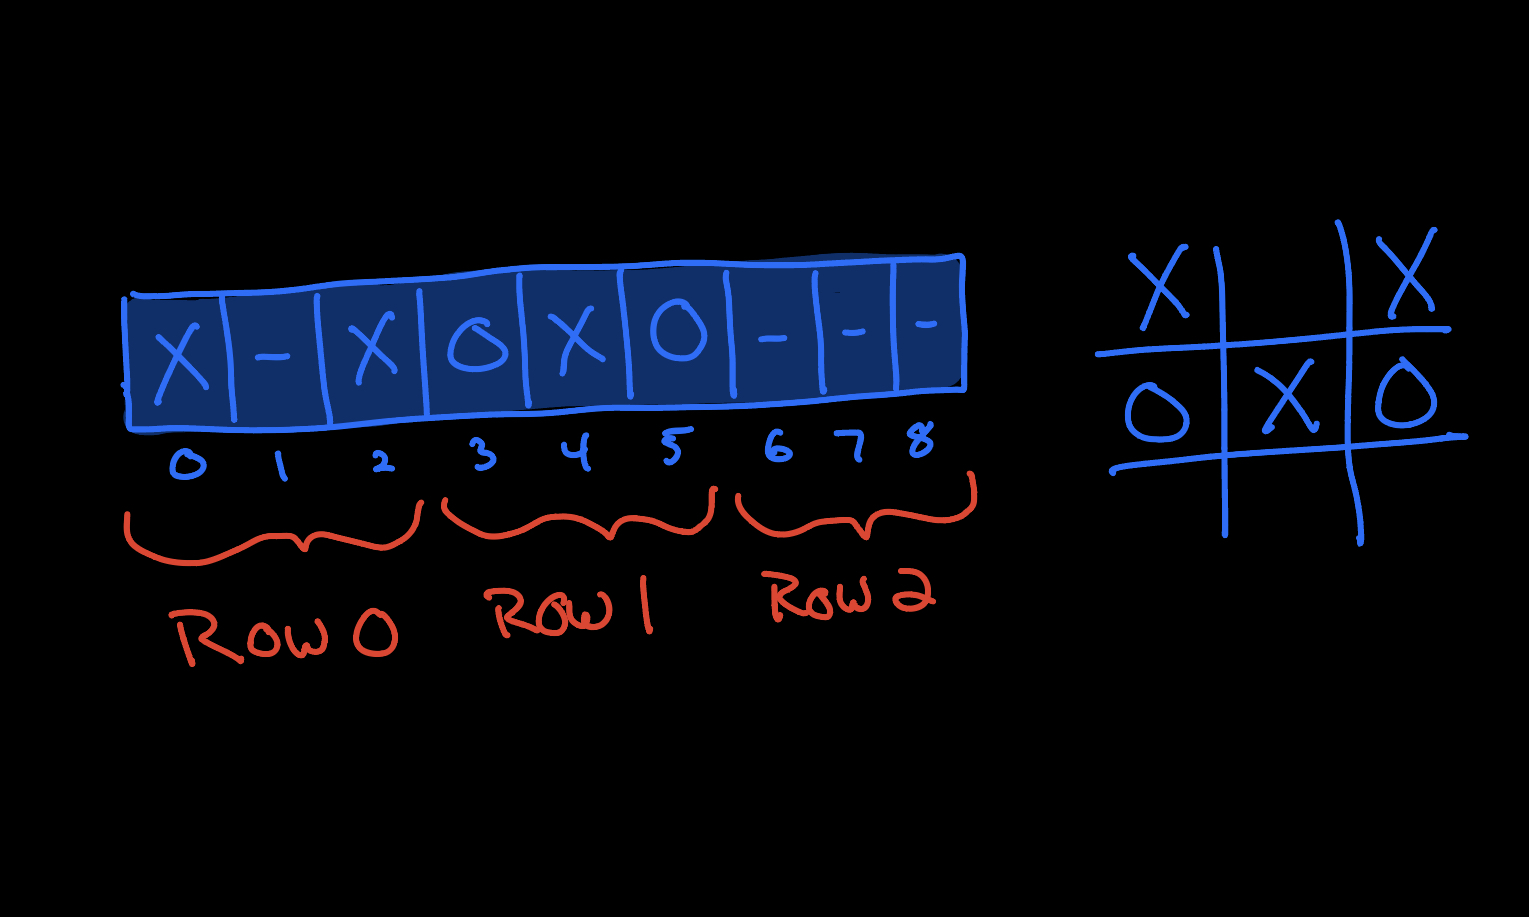 X - X O X O - - -
0 1 2 3 4 5 6 7 8
Row 0 Row 1 Row 2
X X
O X O